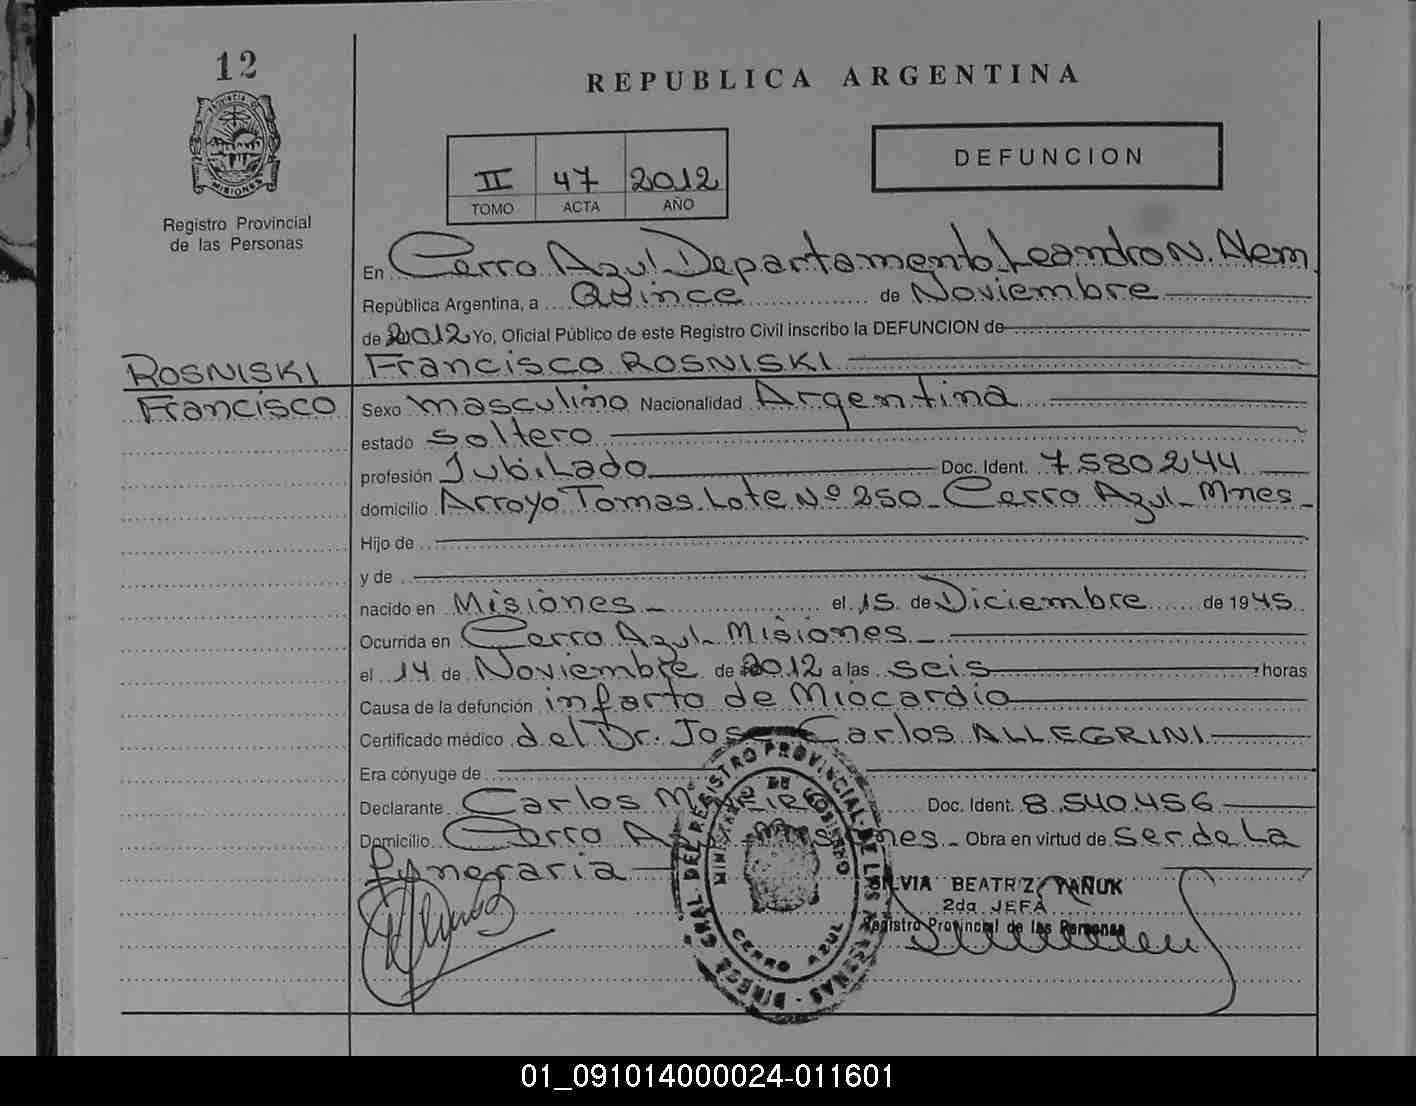 12
PROVINCIA DE
MISIONES
Registro Provincial
de las Personas
REPUBLICA ARGENTINA
II 47 2012
TOMO ACTA AÑO
DEFUNCION
En Cerro Azul Departamento Leandro N. Alem
República Argentina, a Quince de Noviembre
de 2012 Yo, Oficial Público de este Registro Civil inscribo la DEFUNCION de
ROSNISKI Francisco ROSNISKI
Francisco Sexo masculino Nacionalidad Argentina
estado soltero
profesión Jubilado Doc. Ident. 7580244
domicilio Arroyo Tomas Lote Nº 250 - Cerro Azul - Mnes -
Hijo de
y de
nacido en Misiones - el 15 de Diciembre de 1945
Ocurrida en Cerro Azul - Misiones -
el 14 de Noviembre de 2012 a las seis horas
Causa de la defunción infarto de Miocardio
Certificado médico del Dr. Jose Carlos ALLEGRINI
Era cónyuge de
Declarante Carlos Doc. Ident. 8.540.456
Domicilio Cerro Azul Misiones - Obra en virtud de ser de La
funeraria
DIRECC. GRAL. DEL REGISTRO PROVINCIAL DE LAS PERSONAS
MINISTERIO DE GOBIERNO
CERRO AZUL
SILVIA BEATRIZ PAÑUK
2da JEFA
Registro Provincial de las Personas
01_091014000024-011601